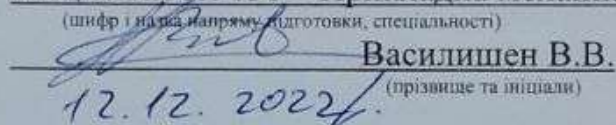 (шифр і назва напряму підготовки, спеціальності)
Василишен В.В.
(прізвище та ініціали)
12.12.2022